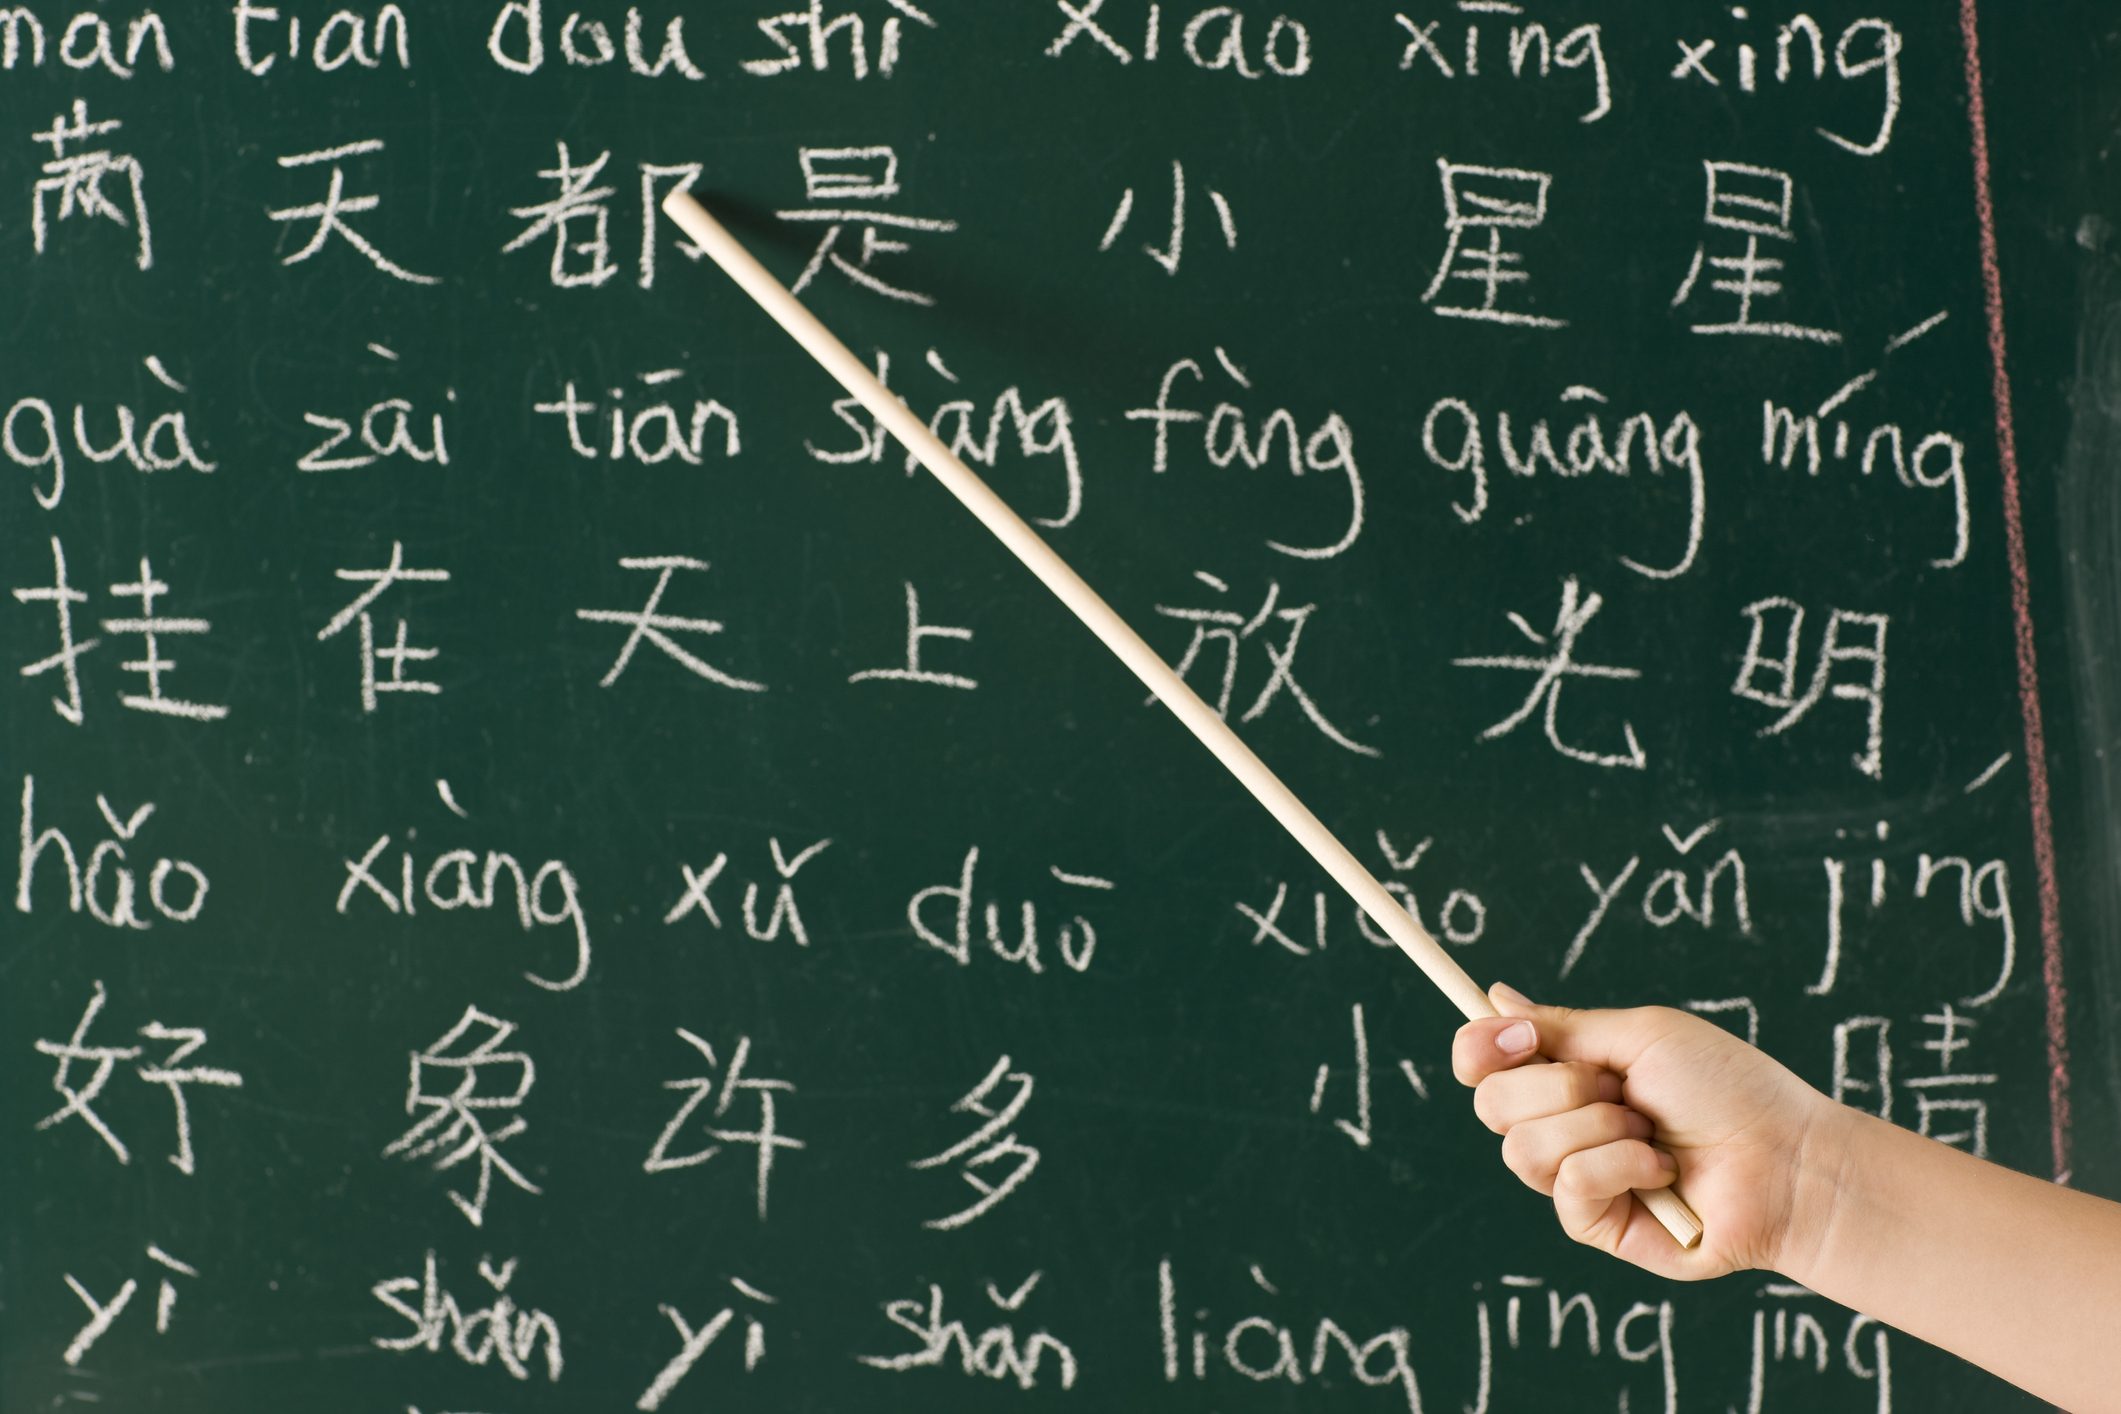 tian dou shì xiao xīng xing
天 都 是 小 星 星
guà zài tiān shàng fàng guāng míng
挂 在 天 上 放 光 明
hǎo xiàng xǔ duō xiǎo yǎn jing
好 象 许 多 小 睛
yì shǎn yì shǎn liàng jīng jīng